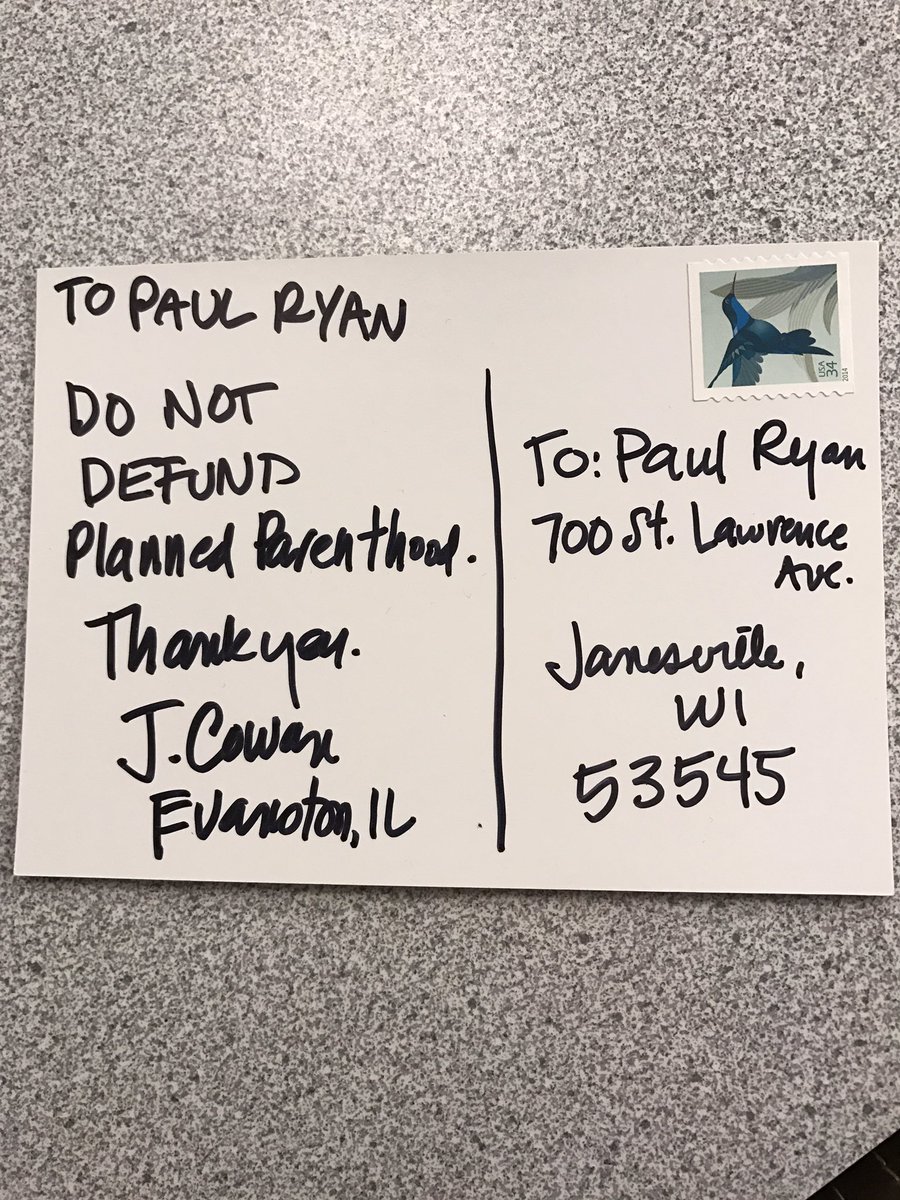 TO PAUL RYAN
DO NOT
DEFUND
Planned Parenthood.
Thank you.
J. Cowan
Evanston, IL
USA
34
2014
To: Paul Ryan
700 St. Lawrence
Ave.
Janesville,
WI
53545